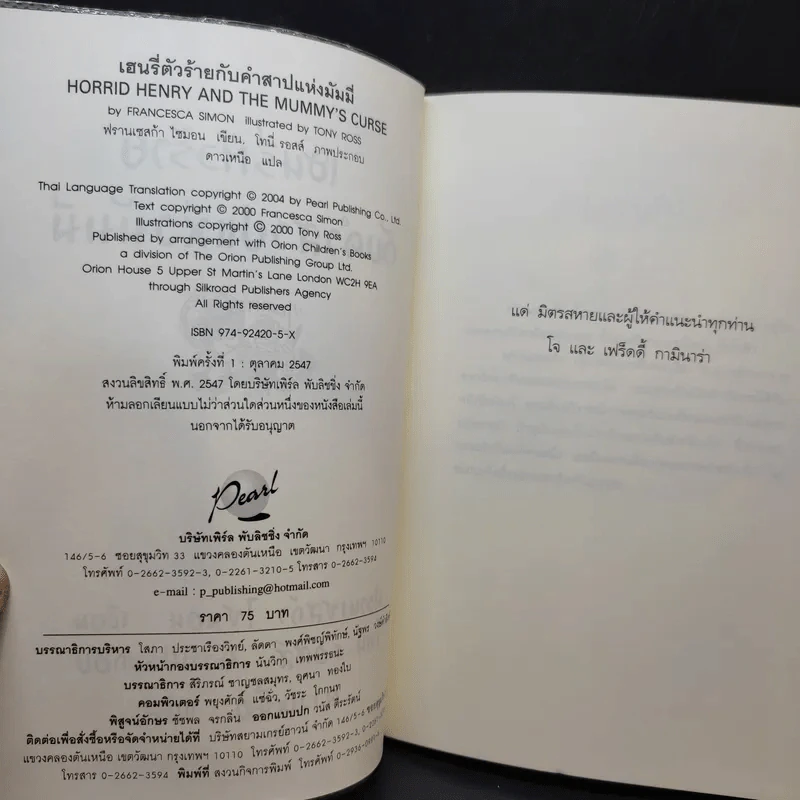 เฮนรี่ตัวร้ายกับคำสาปแห่งมัมมี่
HORRID HENRY AND THE MUMMY'S CURSE
by FRANCESCA SIMON illustrated by TONY ROSS
ฟรานเซสก้า ไซมอน เขียน, โทนี่ รอสส์ ภาพประกอบ
ดาวเหนือ แปล
Thai Language Translation copyright © 2004 by Pearl Publishing Co., Ltd.
Text copyright © 2000 Francesca Simon
Illustrations copyright © 2000 Tony Ross
Published by arrangement with Orion Children's Books
a division of The Orion Publishing Group Ltd.
Orion House 5 Upper St Martin's Lane London WC2H 9EA
through Silkroad Publishers Agency
All Rights reserved
ISBN 974-92420-5-X
พิมพ์ครั้งที่ 1 : ตุลาคม 2547
สงวนลิขสิทธิ์ พ.ศ. 2547 โดยบริษัทเพิร์ล พับลิชชิ่ง จำกัด
ห้ามลอกเลียนแบบไม่ว่าส่วนใดส่วนหนึ่งของหนังสือเล่มนี้
นอกจากได้รับอนุญาต
Pearl
บริษัทเพิร์ล พับลิชชิ่ง จำกัด
146/5-6 ซอยสุขุมวิท 33 แขวงคลองตันเหนือ เขตวัฒนา กรุงเทพฯ 10110
โทรศัพท์ 0-2662-3592-3, 0-2261-3210-5 โทรสาร 0-2662-3594
e-mail : p_publishing@hotmail.com
ราคา 75 บาท
บรรณาธิการบริหาร โสภา ประชาเรืองวิทย์, ลัดดา พงศ์พิชญ์พิทักษ์, นัฐพร
หัวหน้ากองบรรณาธิการ นันวิกา เทพพรรธนะ
บรรณาธิการ สิริภรณ์ ชาญชลสมุทร, อุศนา ทองใบ
คอมพิวเตอร์ พยุงศักดิ์ แซ่ฉั่ว, วัชระ โกกนท
พิสูจน์อักษร ชัชพล จรกลิ่น ออกแบบปก วนัส ตีระรัตน์
ติดต่อเพื่อสั่งซื้อหรือจัดจำหน่ายได้ที่ บริษัทสยามเกรย์ฮาวน์ จำกัด 146/5-6
แขวงคลองตันเหนือ เขตวัฒนา กรุงเทพฯ 10110 โทรศัพท์ 0-2662-3592-3,
โทรสาร 0-2662-3594 พิมพ์ที่ สงวนกิจการพิมพ์ โทรสาร
แด่ มิตรสหายและผู้ให้คำแนะนำทุกท่าน
โจ และ เฟร็ดดี้ กามินาร่า